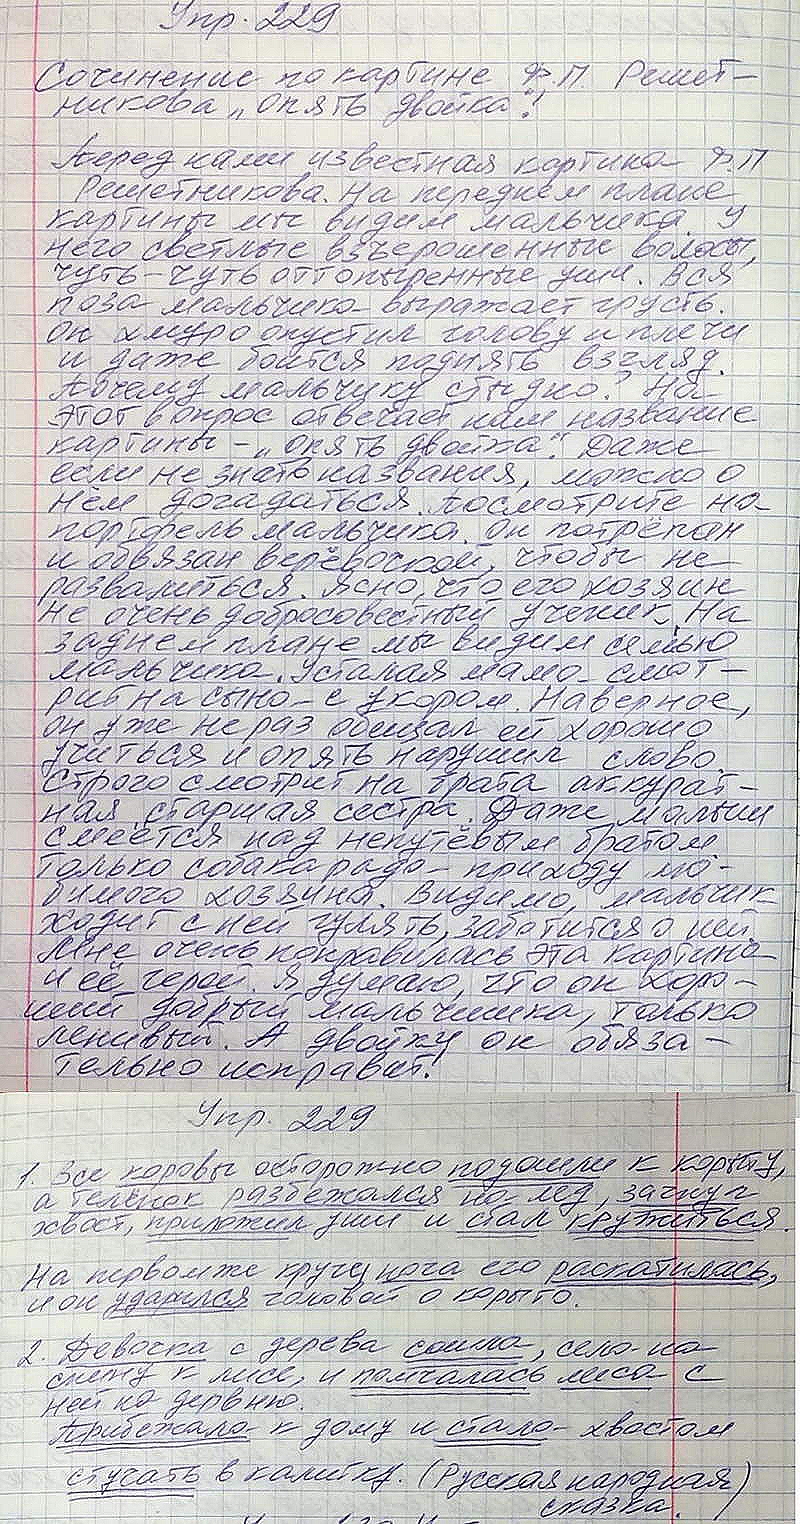 Упр. 229
Сочинение по картине Ф.П. Решет-
никова „Опять двойка"!
Перед нами известная картина Ф.П
Решетникова. На переднем плане
картины мы видим мальчика. У
него светлые взъерошенные волосы,
чуть-чуть оттопыренные уши. Вся
поза мальчика выражает грусть.
Он хмуро опустил голову и плечи
и даже боится поднять взгляд.
Почему мальчику стыдно? На
этот вопрос отвечает нам название
картины – „Опять двойка". Даже
если не знать названия, можно о
нём догадаться. Посмотрите на
портфель мальчика. Он потрёпан
и обвязан верёвочкой, чтобы не
развалиться. Ясно, что его хозяин
не очень добросовестный ученик. На
заднем плане мы видим семью
мальчика. Усталая мама смот-
рит на сына с укором. Наверное,
он уже не раз обещал ей хорошо
учиться и опять нарушил слово.
Строго смотрит на брата аккурат-
ная старшая сестра. Даже малыш
смеётся над непутёвым братом
только собака рада приходу лю-
бимого хозяина. Видимо, мальчик
ходит с ней гулять, заботится о ней.
Мне очень понравилась эта картина
и её герой. Я думаю, что он хоро-
ший добрый мальчишка, только
ленивый. А двойку он обяза-
тельно исправит!
Упр. 229
1. Все коровы осторожно подошли к корыту,
а телёнок разбежался на лёд, загнул
хвост, приложил уши и стал кружиться.
На первом же кругу нога его раскатилась,
и он ударился головой о корыто.
2. Девочка с дерева сошла, села на
спину к лисе, и помчалась лиса с
ней по дервню.
Прибежала к дому и стала хвостом
стучать в калитку. (Русская народная
сказка.)